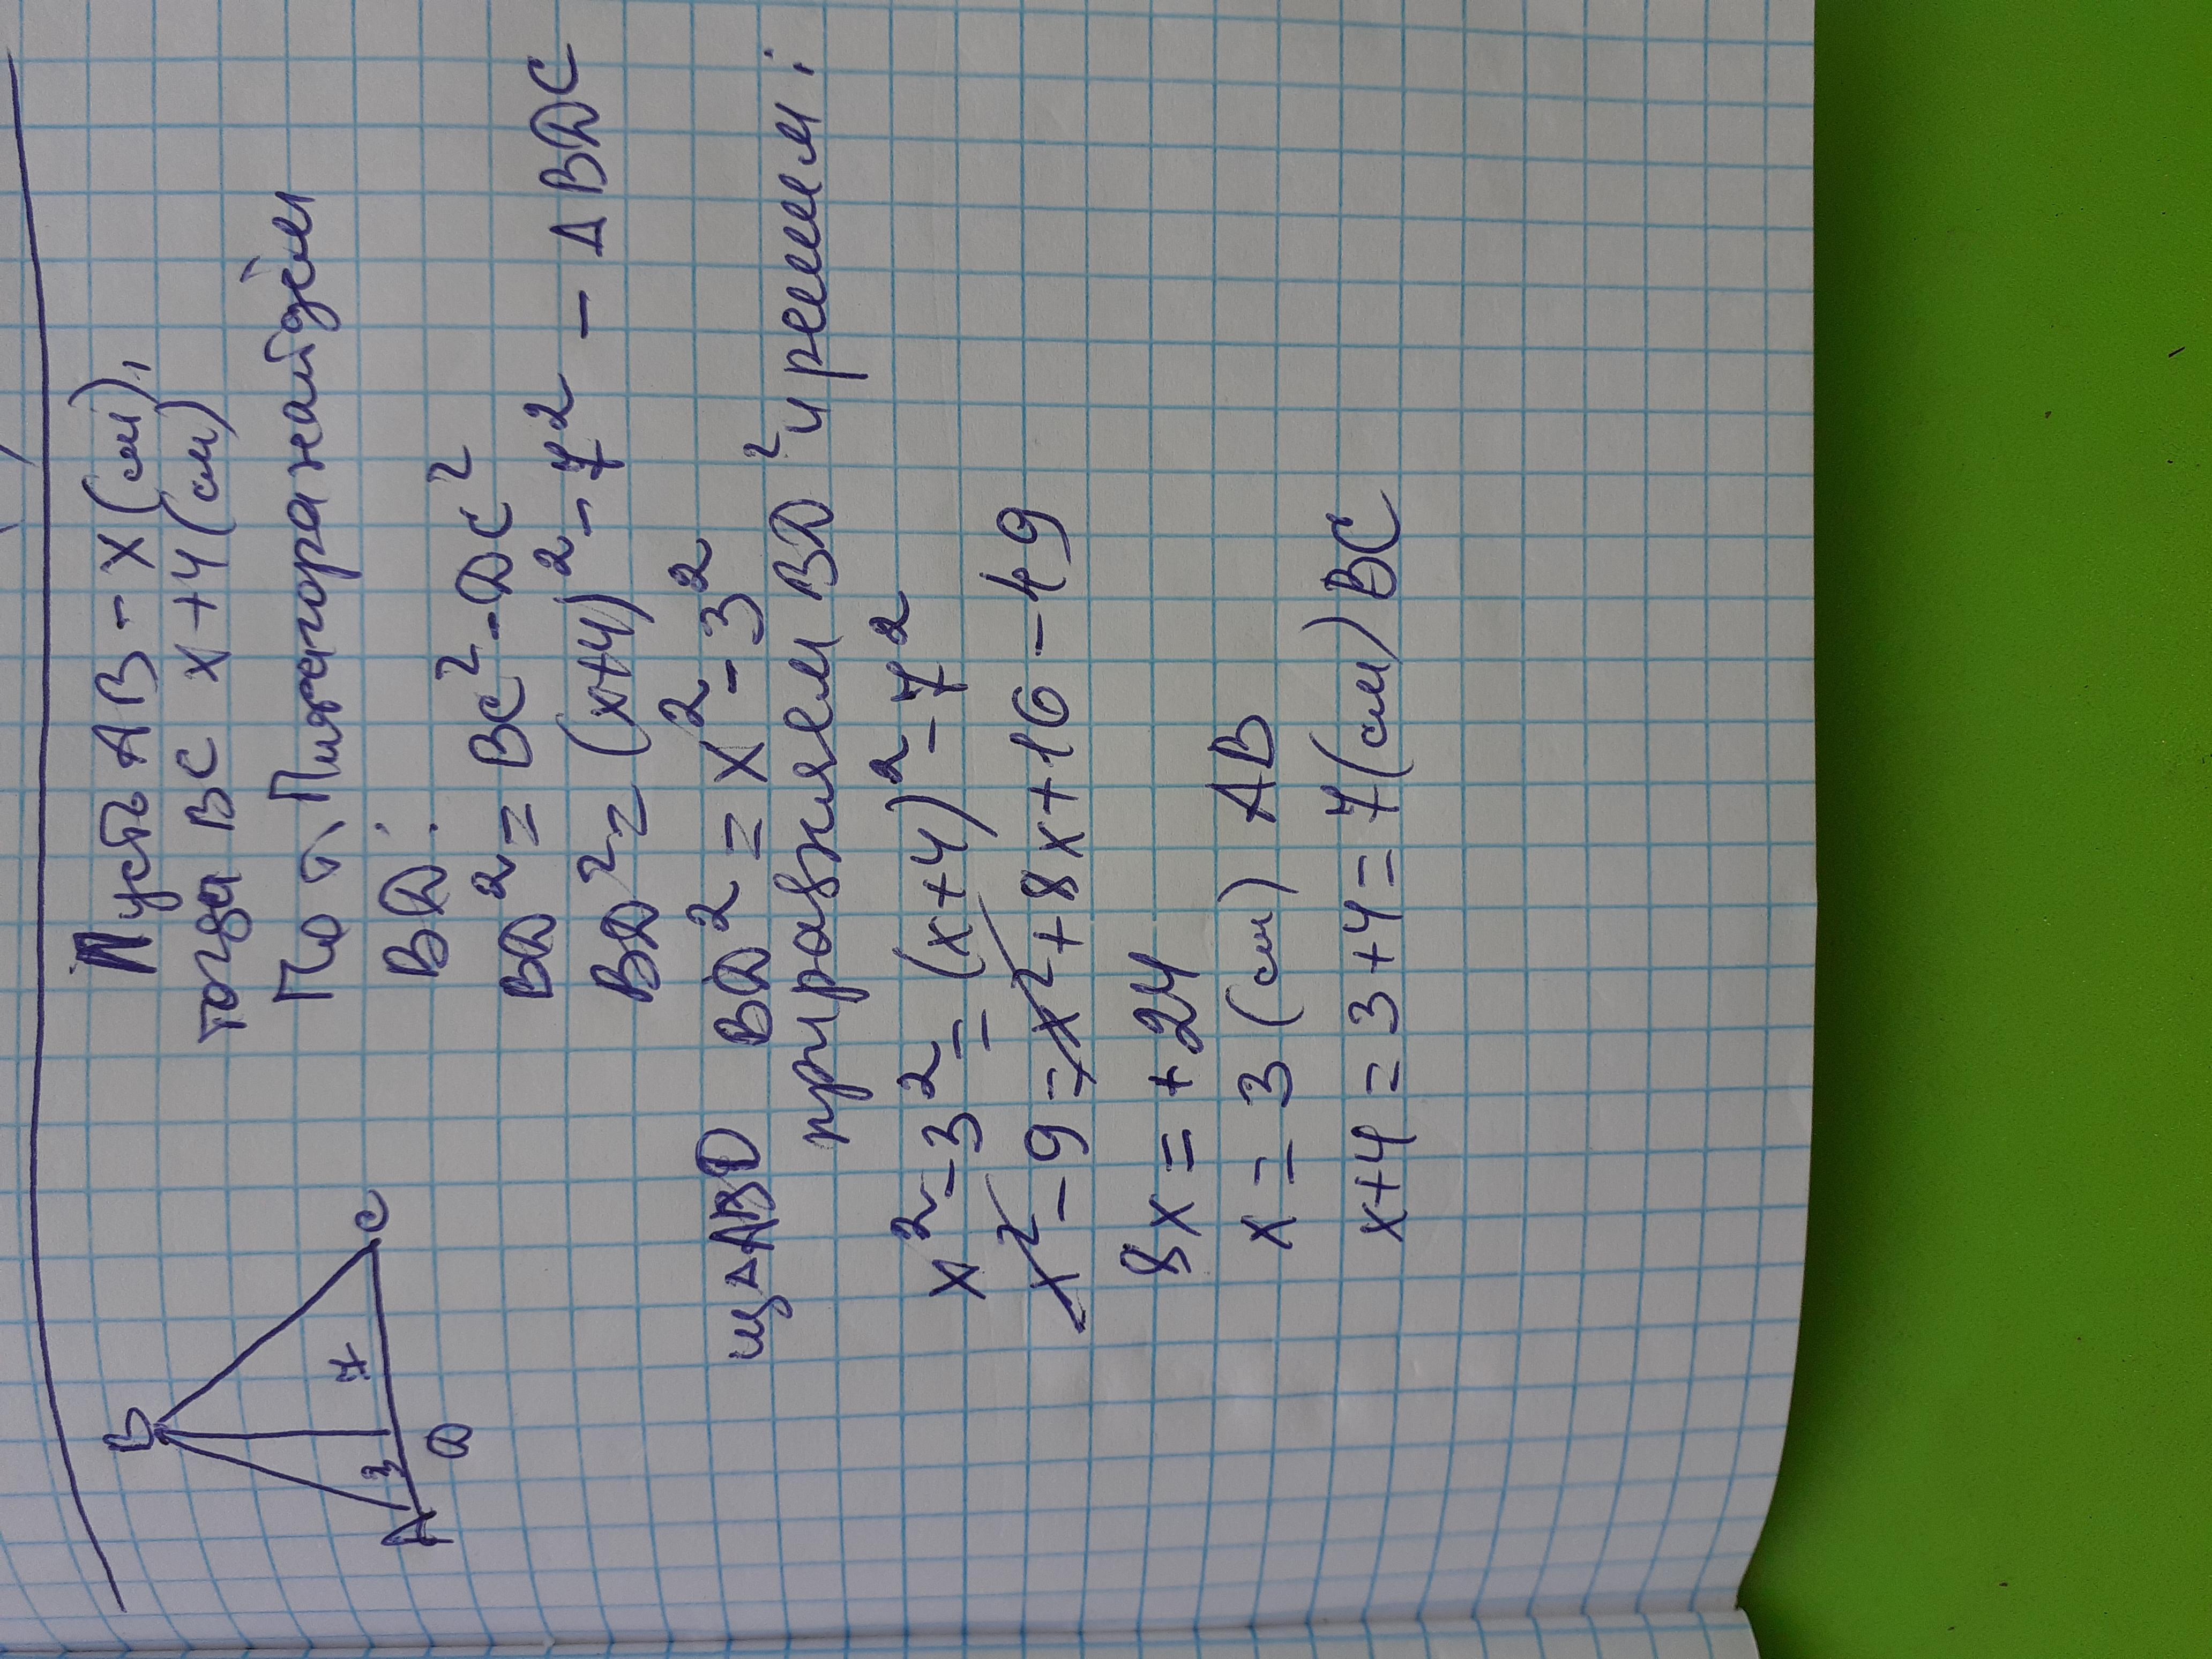 B
3
7
A
D
C
Пусть AB – x (см),
тогда BC x+4 (см)
По т. Пифагора найдём
BD:
BD² = BC² - DC²
BD² = (x+4)² – 7² – Δ BDC
из ΔABD BD² = x² – 3²
приравняем BD² и решим:
x² – 3² = (x+4)² – 7²
x² – 9 = x² + 8x + 16 – 49
8x = + 24
x = 3 (см) AB
x+4 = 3+4 = 7 (см) BC